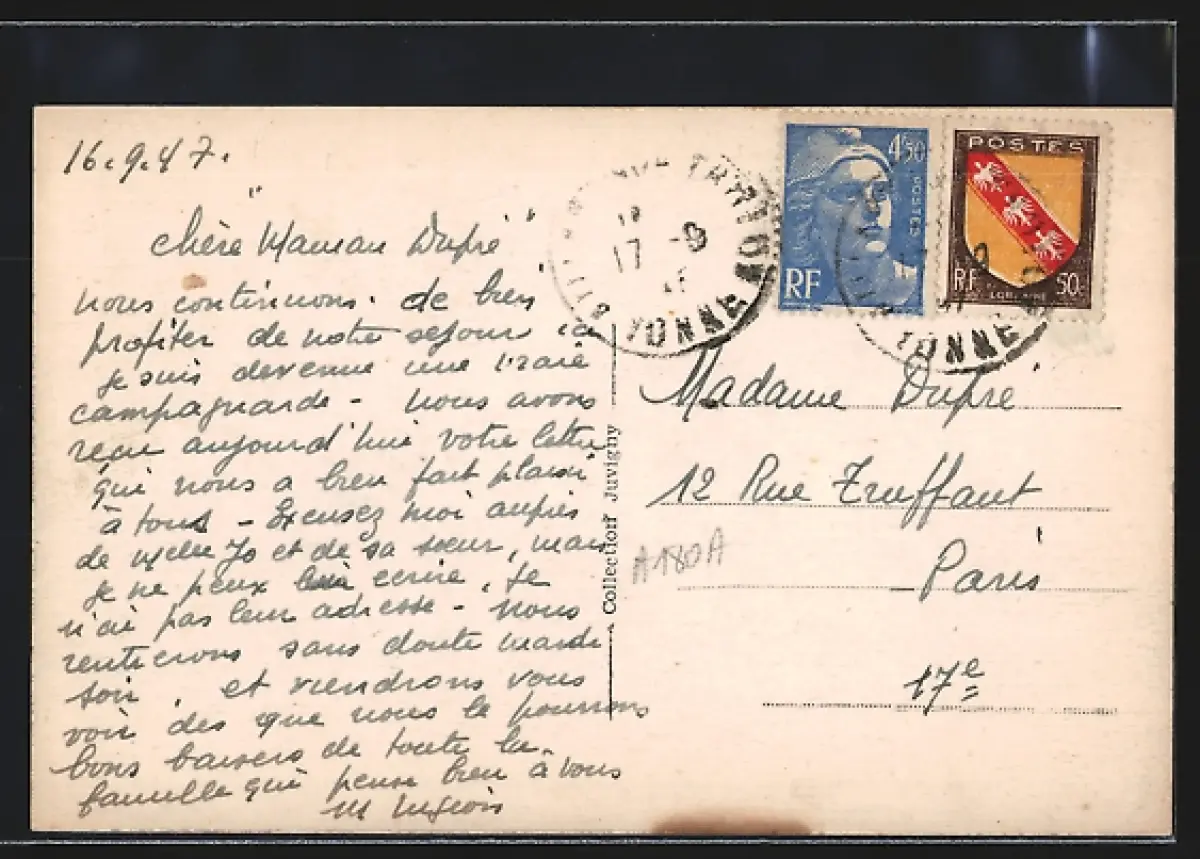 16.9.47.
"Chère Maman Dupré"
nous continuons. de bien
profiter de notre séjour ici
je suis devenue une vraie
campagnarde - Nous avons
reçu aujourd'hui votre lettre
qui nous a bien fait plaisir
à tous - Excusez moi auprès
de Melle Jo et de sa sœur, mais
je ne peux écrire, je
n'ai pas leur adresse - Nous
rentrerons sans doute mardi
soir, et viendrons vous
voir dès que nous le pourrons
bons baisers de toute la
famille qui pense bien à vous
M
Collection Juvigny
17 -9
YONNE
4F50
POSTES
RF
POSTES
RF
LORRAINE
50c
YONNE
Madame Dupré
12 Rue Truffaut
A180A
Paris
17e